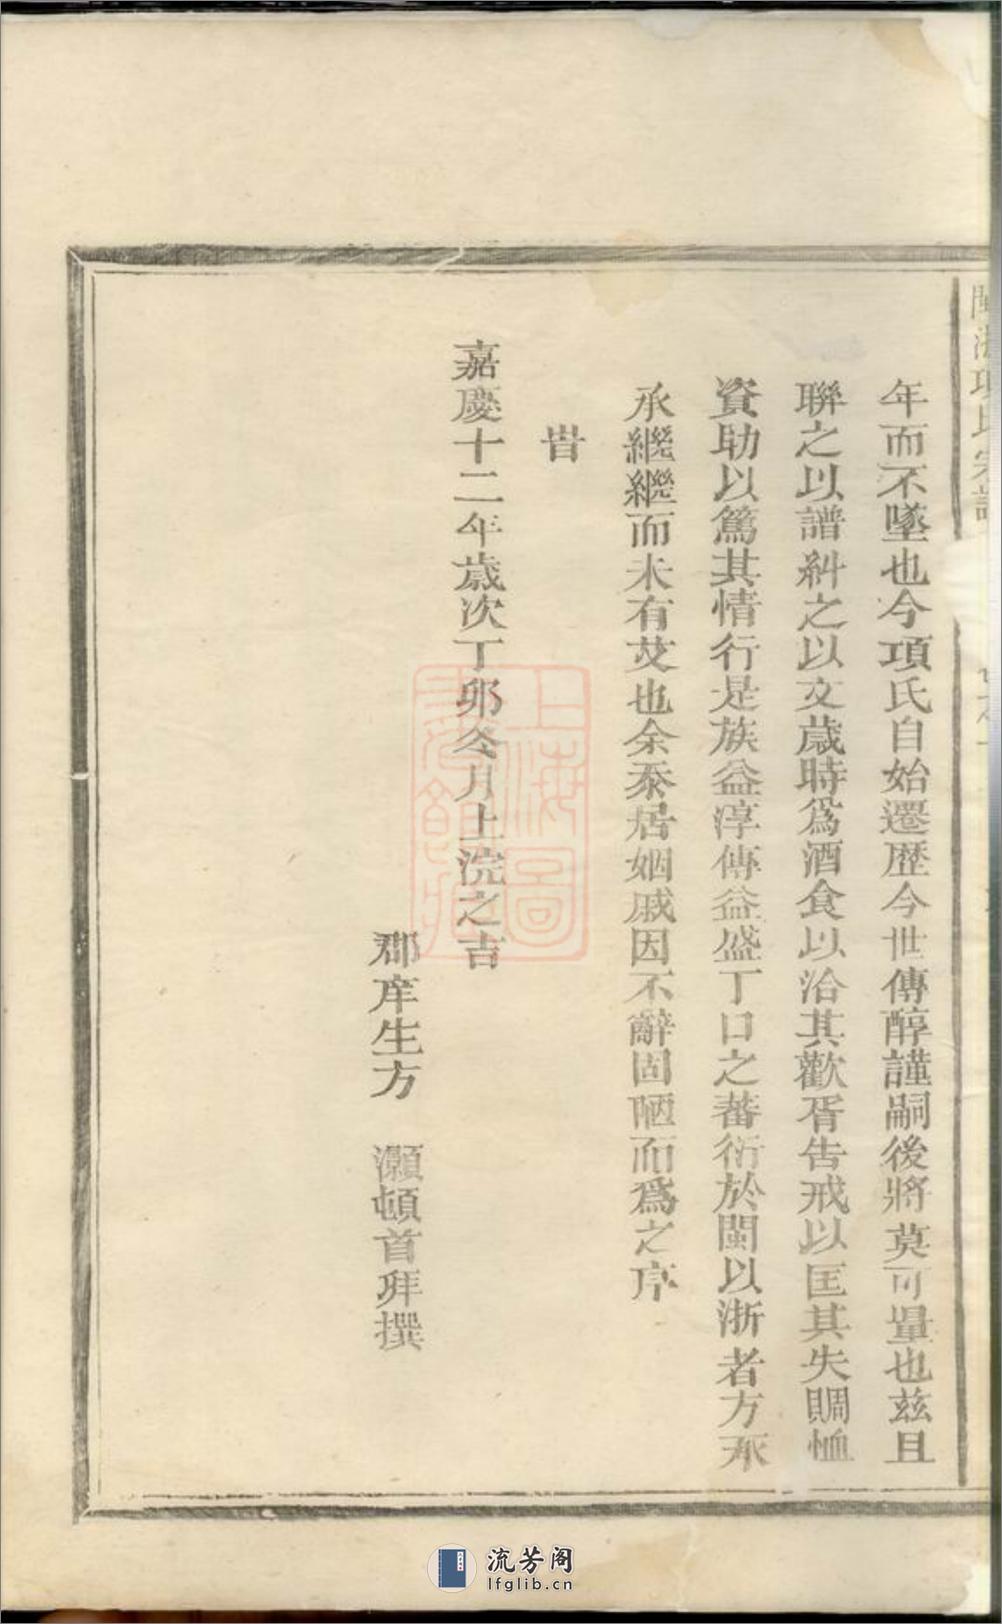 閩浙項氏宗譜
年而不墜也今項氏自始遷歷今世傳醇謹嗣後將莫可量也茲且
聯之以譜糾之以文歲時爲酒食以洽其歡胥告戒以匡其失賙恤
資助以篤其情行是族益淳傳益盛丁口之蕃衍於閩以浙者方承
承繼繼而未有艾也余忝居姻戚因不辭固陋而爲之序
旹
嘉慶十二年歲次丁卯冬月上浣之吉
郡庠生方 灝頓首拜撰
上海圖
書館藏
流芳阁
lfglib.cn